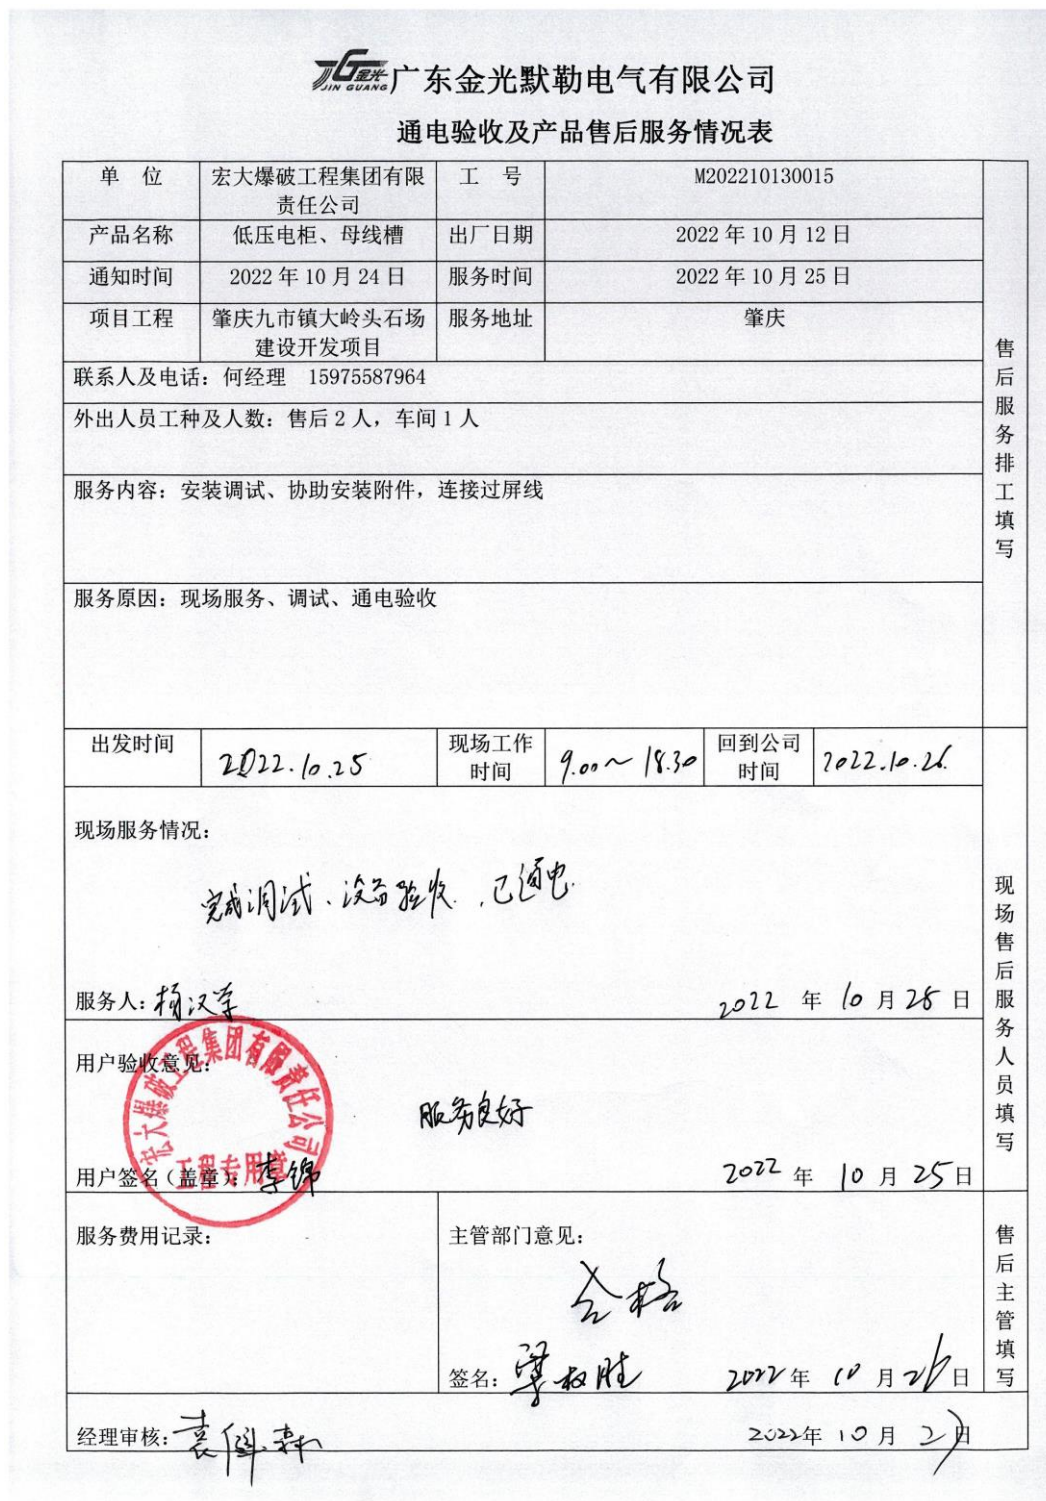 金光
JIN GUANG
广东金光默勒电气有限公司
通电验收及产品售后服务情况表
单 位 宏大爆破工程集团有限责任公司 工 号 M202210130015
产品名称 低压电柜、母线槽 出厂日期 2022年10月12日
通知时间 2022年10月24日 服务时间 2022年10月25日
项目工程 肇庆九市镇大岭头石场建设开发项目 服务地址 肇庆
联系人及电话：何经理 15975587964
外出人员工种及人数：售后2人，车间1人
服务内容：安装调试、协助安装附件，连接过屏线
服务原因：现场服务、调试、通电验收
售后服务排工填写
出发时间 2022.10.25 现场工作时间 9.00～18.30 回到公司时间 2022.10.26.
现场服务情况：
完成调试、设备验收、已通电.
服务人：杨汉 2022 年 10 月 25 日
用户验收意见：
服务良好
宏大爆破工程集团有限责任公司
工程专用章
用户签名（盖章）：李锦 2022 年 10 月 25 日
现场售后服务人员填写
服务费用记录：
主管部门意见：
合格
签名： 2022 年 10 月 26 日
售后主管填写
经理审核：袁 森 2022年 10 月 27日